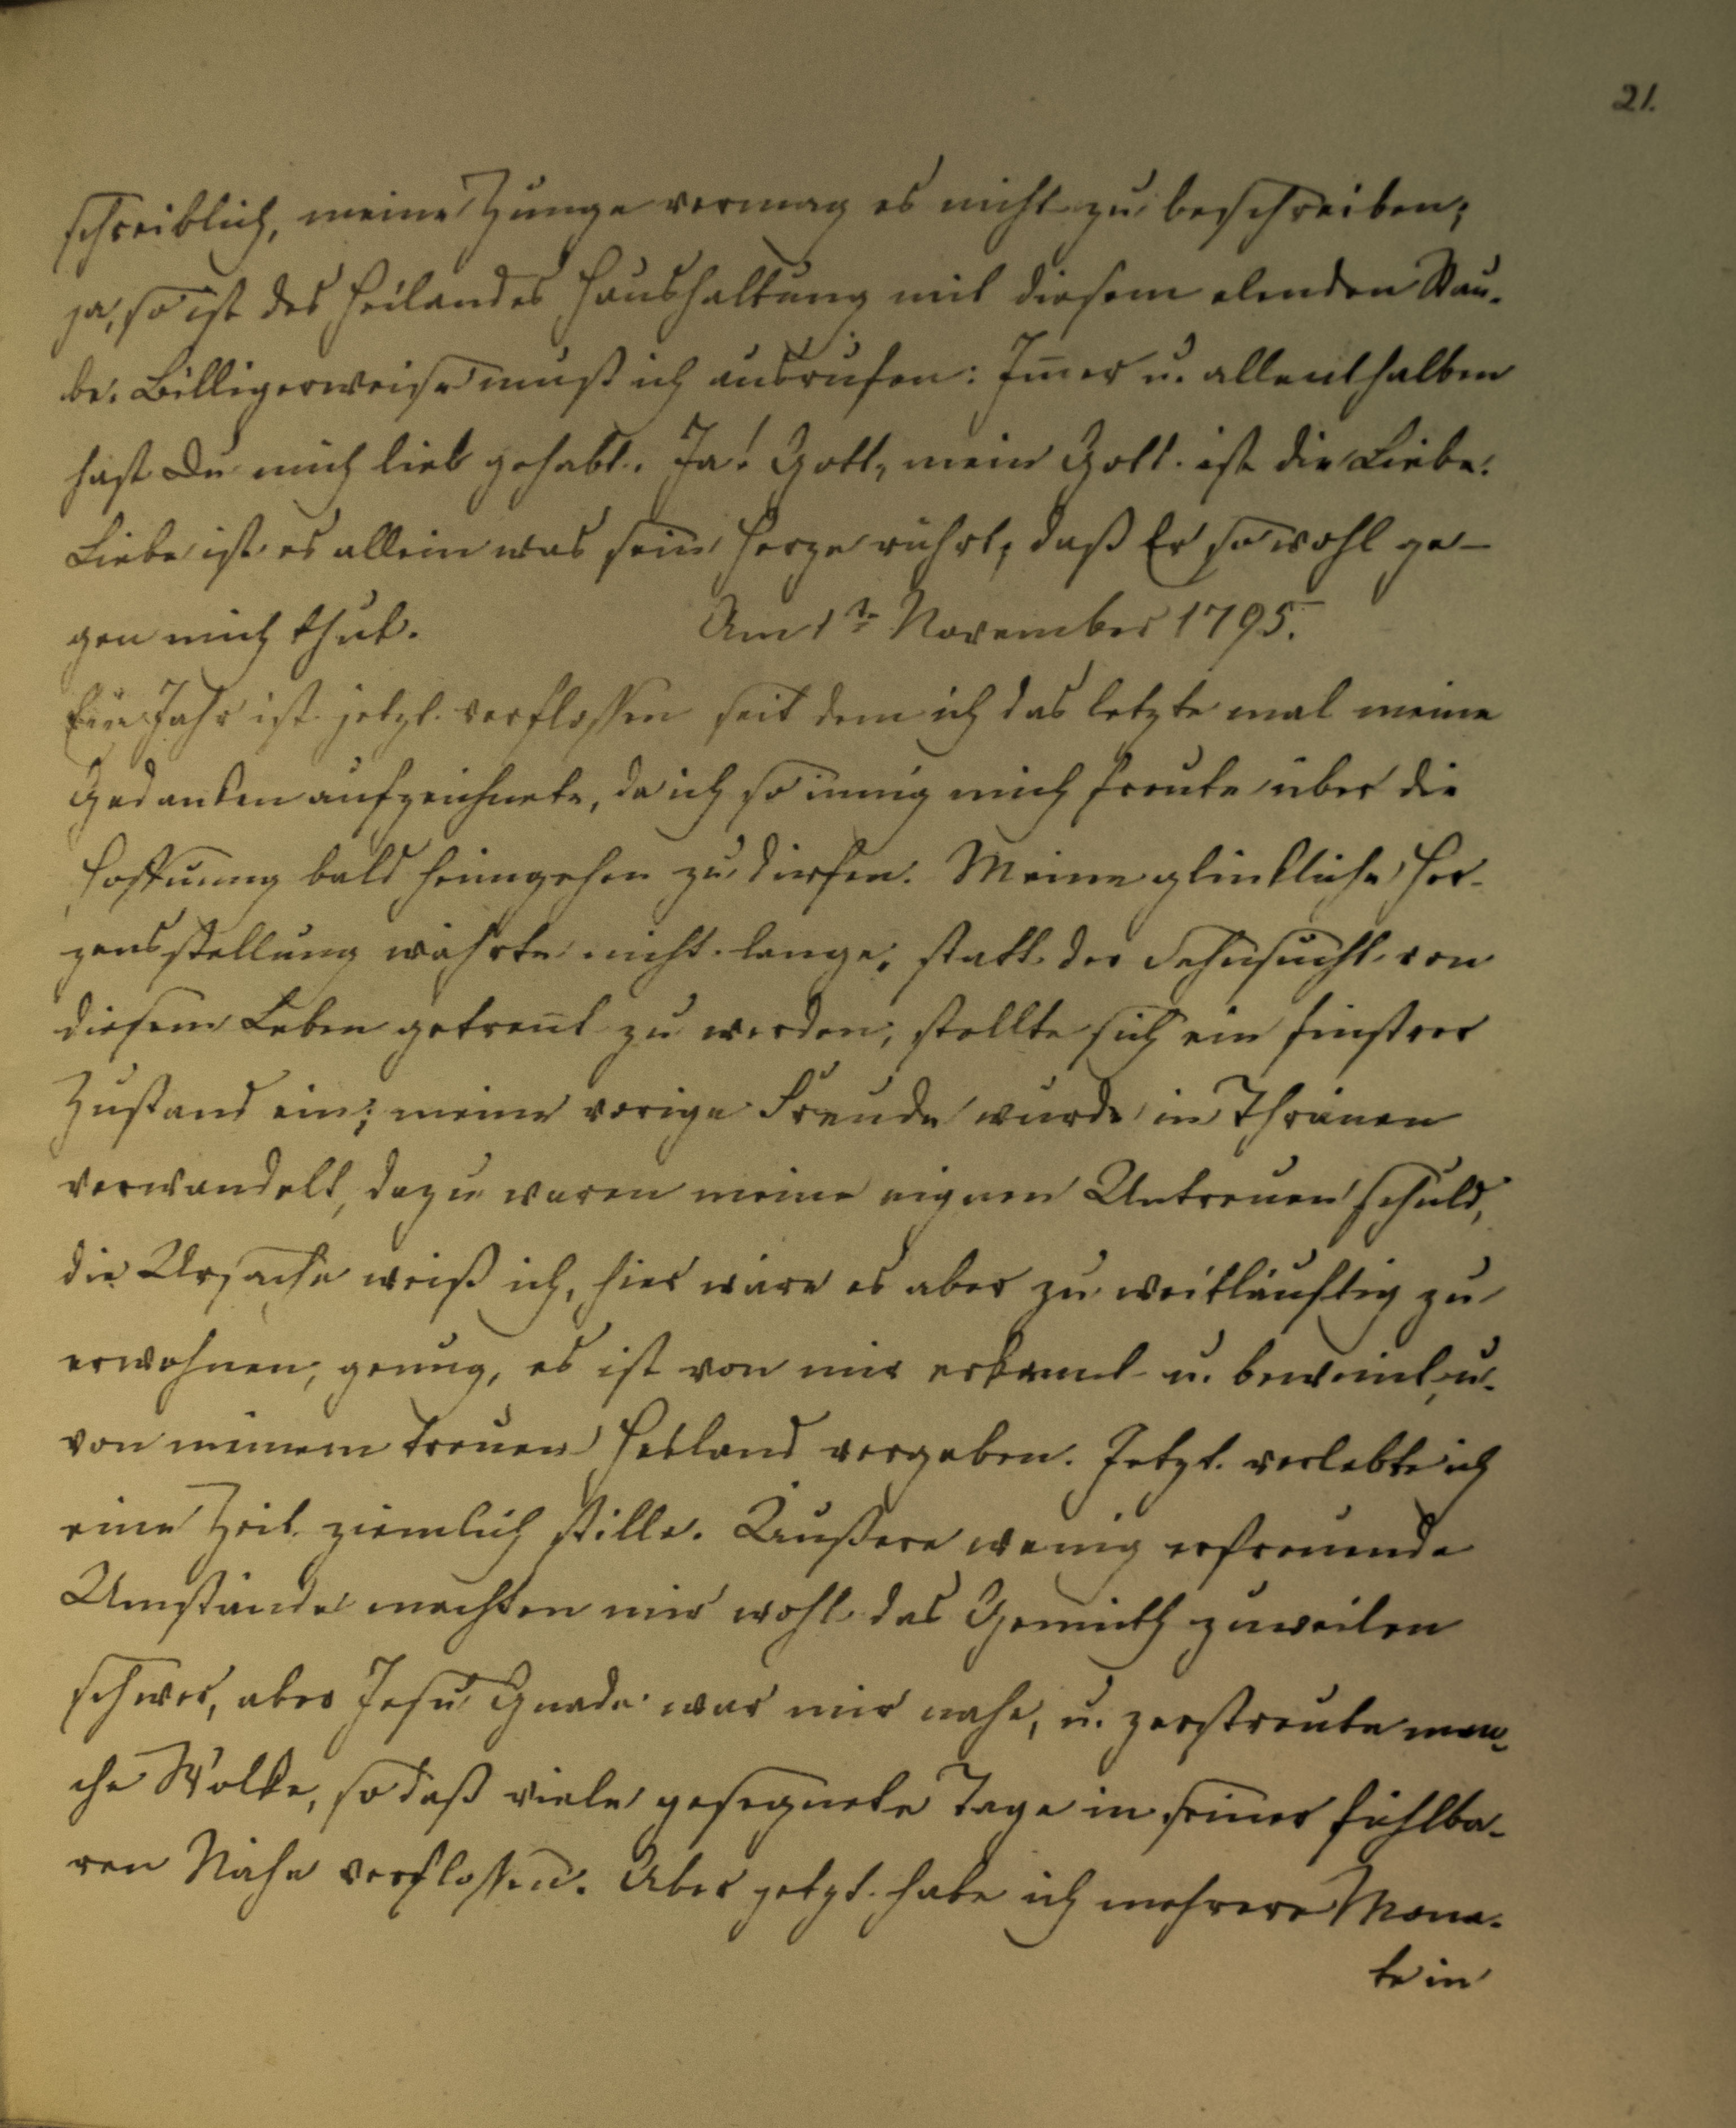 21.
schreiblich, meine Zunge vermag es nicht zu beschreiben;
ja, so ist des Heilandes Haushaltung mit diesem elenden Stau-
be. Billigerweise muß ich ausrufen: Im̄er u. allenthalben
hast Du mich lieb gehabt. Ja! Gott, mein Gott ist die Liebe.
Liebe ist es allein was sein Herze rührt, daß Er so wohl ge-
gen mich thut. Am 1t November 1795.
Ein Jahr ist jetzt verflossen seit dem ich das letzte mal meine
Gedanken aufzeichnete, da ich so innig mich freute über die
Hoffnung bald heimgehen zu dirfen. Meine glückliche Her-
zensstellung währte nicht lange; statt der Sehnsucht von
diesem Leben getren̄t zu werden, stellte sich ein finstrer
Zustand ein; meine vorige Freude wurde in Thränen
verwandelt, dazu waren meine eignen Untreuen schuld,
die Ursache weiß ich, hier wäre es aber zu weitläuftig zu
erwehnen, genung, es ist von mir erkannt u. beweint, u.
von meinem treuen Heiland vergeben. Jetzt verlebte ich
eine Zeit ziemlich stille. Äußere wenig erfreuende
Umstände machten mir wohl das Gemüth zuweilen
schwer, aber Jesu Gnade war mir nahe, u. zerstreute man-
che Wolke, so daß viele gesegnete Tage in seiner fühlba-
ren Nähe verflossen. Aber jetzt habe ich mehrere Mona-
te in